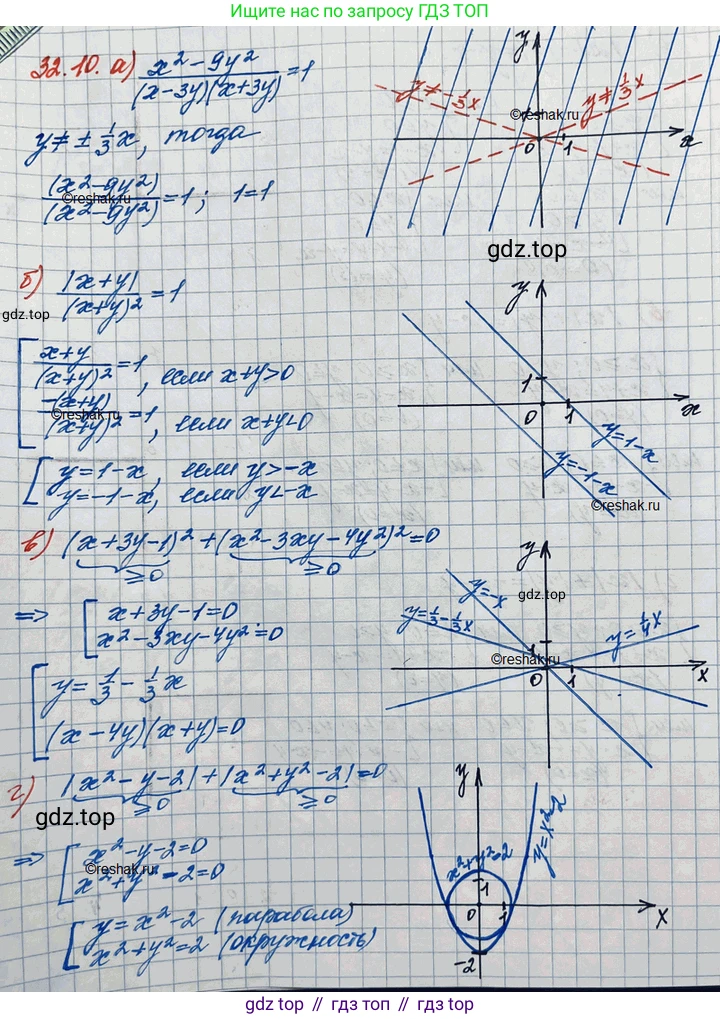 Ищите по запросу ГДЗ ТОП
32.10. а) (x² - 9y²)/((x-3y)(x+3y)) = 1
y ≠ ± 1/3 x, тогда
(x² - 9y²)/(x² - 9y²) = 1; 1=1
©reshak.ru
y
y ≠ -1/3 x
y ≠ 1/3 x
©reshak.ru
0 1 x
gdz.top
б) |x+y|/(x+y)² = 1
gdz.top
[ (x+y)/(x+y)² = 1, если x+y>0
-(x+y)/(x+y)² = 1, если x+y<0
©reshak.ru
[ y=1-x, если y>-x
y=-1-x, если y<-x
y
1
0 1 x
y=1-x
y=-1-x
©reshak.ru
в) (x+3y-1)² + (x²-3xy-4y²)² = 0
≥0 ≥0
=> [ x+3y-1=0
x²-3xy-4y²=0
[ y = 1/3 - 1/3 x
(x-4y)(x+y)=0
y
y=-x
gdz.top
y=1/3-1/3x
y=1/4x
1
©reshak.ru
0 1 x
г) |x²-y-2|+|x²+y²-2|=0
≥0 ≥0
gdz.top
=> [ x²-y-2=0
x²+y²-2=0
©reshak.ru
[ y=x²-2 (парабола)
x²+y²=2 (окружность)
y
x²+y²=2
y=x²-2
1
0 1 x
-2
gdz top // гдз топ // gdz top